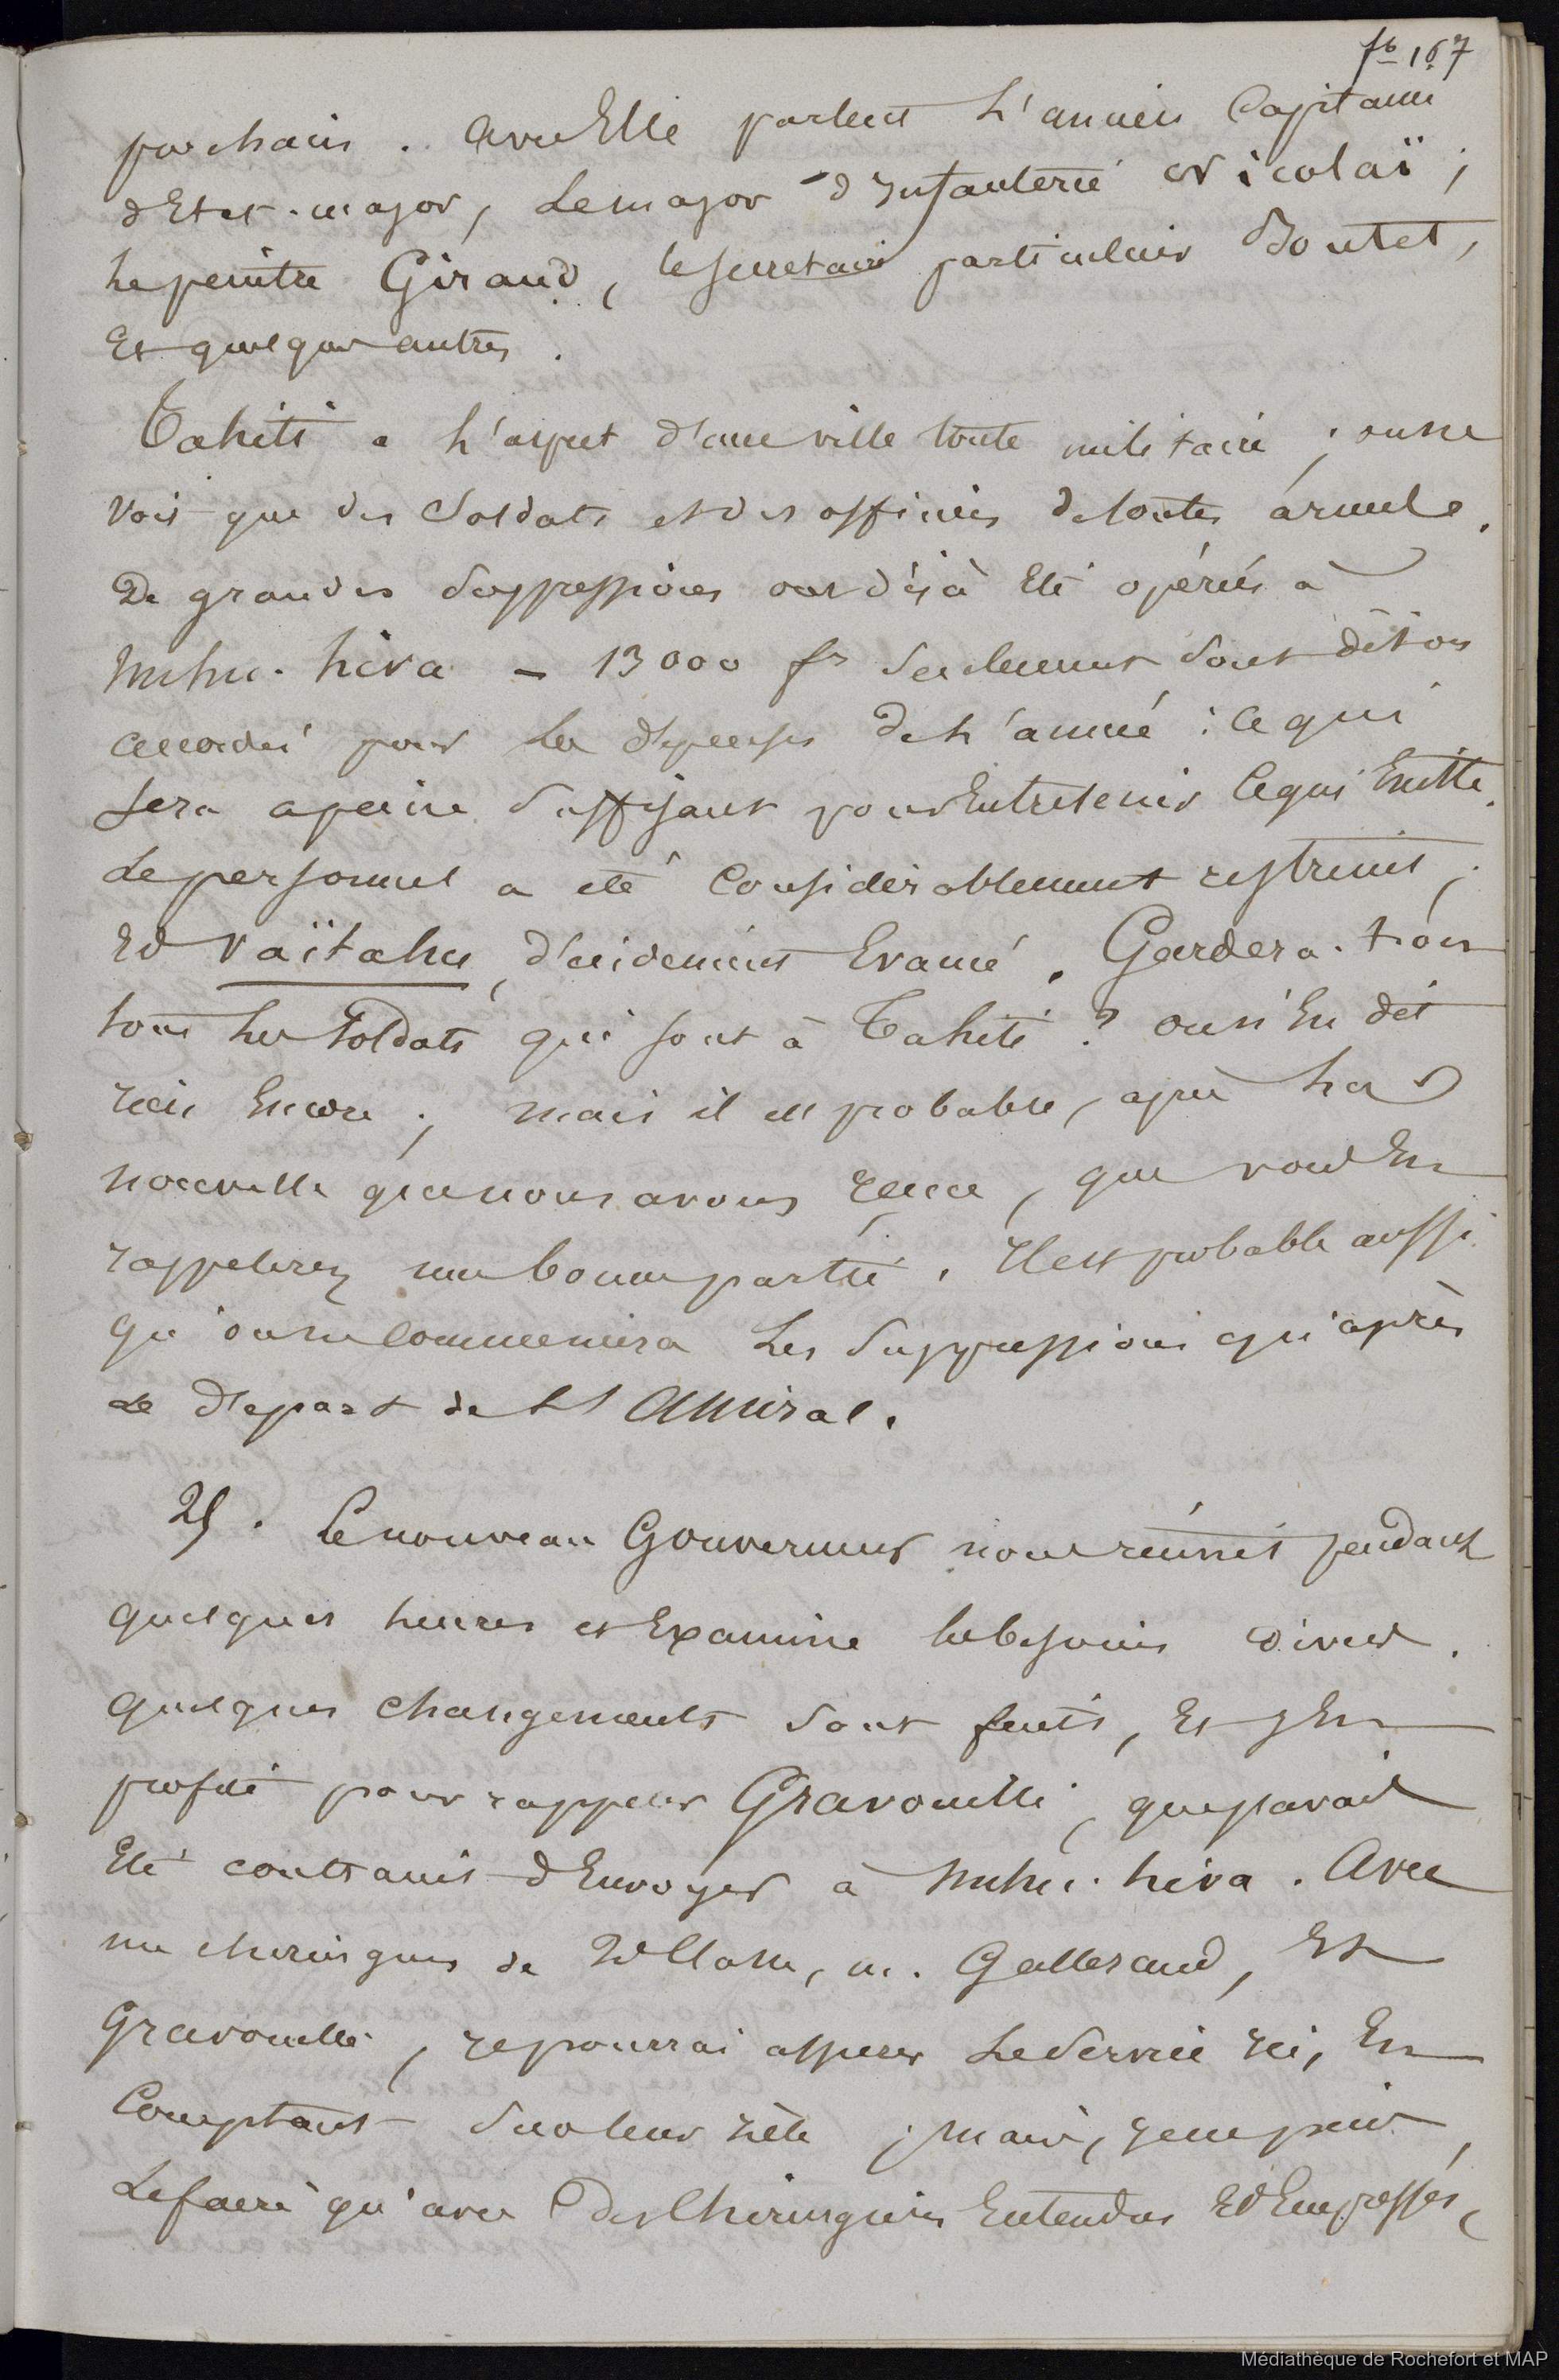 fo 167
prochain. Avec Elle partent L'ancien Capitaine
d'Etat-major, Le major d'Infanterie Nicolaï;
Le peintre Giraud, le secretaire particulier Boutet,
Et quelques autres.
Tahiti a L'aspect d'une ville toute militaire; on ne
voit que des Soldats et des officiers de toutes armes.
De grandes Suppressions ont déjà Eté opérées à
Nuhu-hiva – 13000 fr Seulement Sont dit-on
accordés pour Les dépenses de L'année: ce qui
Sera a peine Suffisant pour Entretenir Ce qui Existe.
Le personnel a été Considérablement restreint;
Et Vaïtahu, Evacué. Gardera-t-on
tous Les Soldats qui sont à Tahiti? on n'En dit
rien Encore; mais il est probable, après La
nouvelle que nous avons reçue, que vous En
rappelerez une bonne partie. Il est probable aussi
qu'on ne Commencera Les Suppressions qu'après
Le départ de L'Amiral.
25. Le nouveau Gouverneur nous réunit pendant
quelques heures et Examine les besoins divers.
quelques changements Sont faits, Et j'En
profite pour rappeler Gravouille, que j'avais
Eté contraint d'Envoyer à Nuhu-hiva. Avec
un chirurgien de 2e Classe, M. Gallerand, Et
Gravouille, je pourrai assurer Le Service ici, En
Comptant Sur leur zèle; mais, je ne puis
Le faire qu'avec des Chirurgiens Entendus Et Empressés,
Médiathèque de Rochefort et MAP